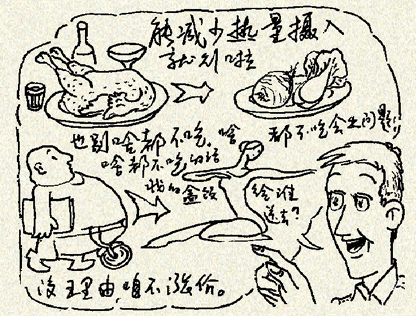 能减少热量摄入
就别啦
也别啥都不吃，啥
都不吃会出问题
啥都不吃的话
我的盒饭
给谁
送去？
没理由，咱不涨价。